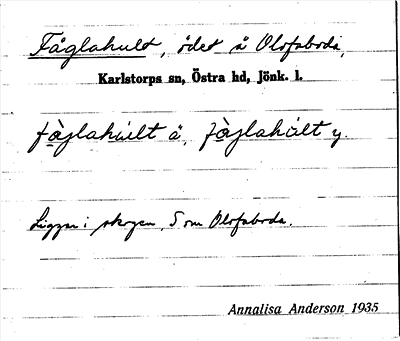 Fåglahult, ödet å Olofsboda,
Karlstorps sn, Östra hd, Jönk. l.
fàglahùlt ä, fàglahùlt y.
Ligger i skogen, S om Olofsboda.
Annalisa Anderson 1935